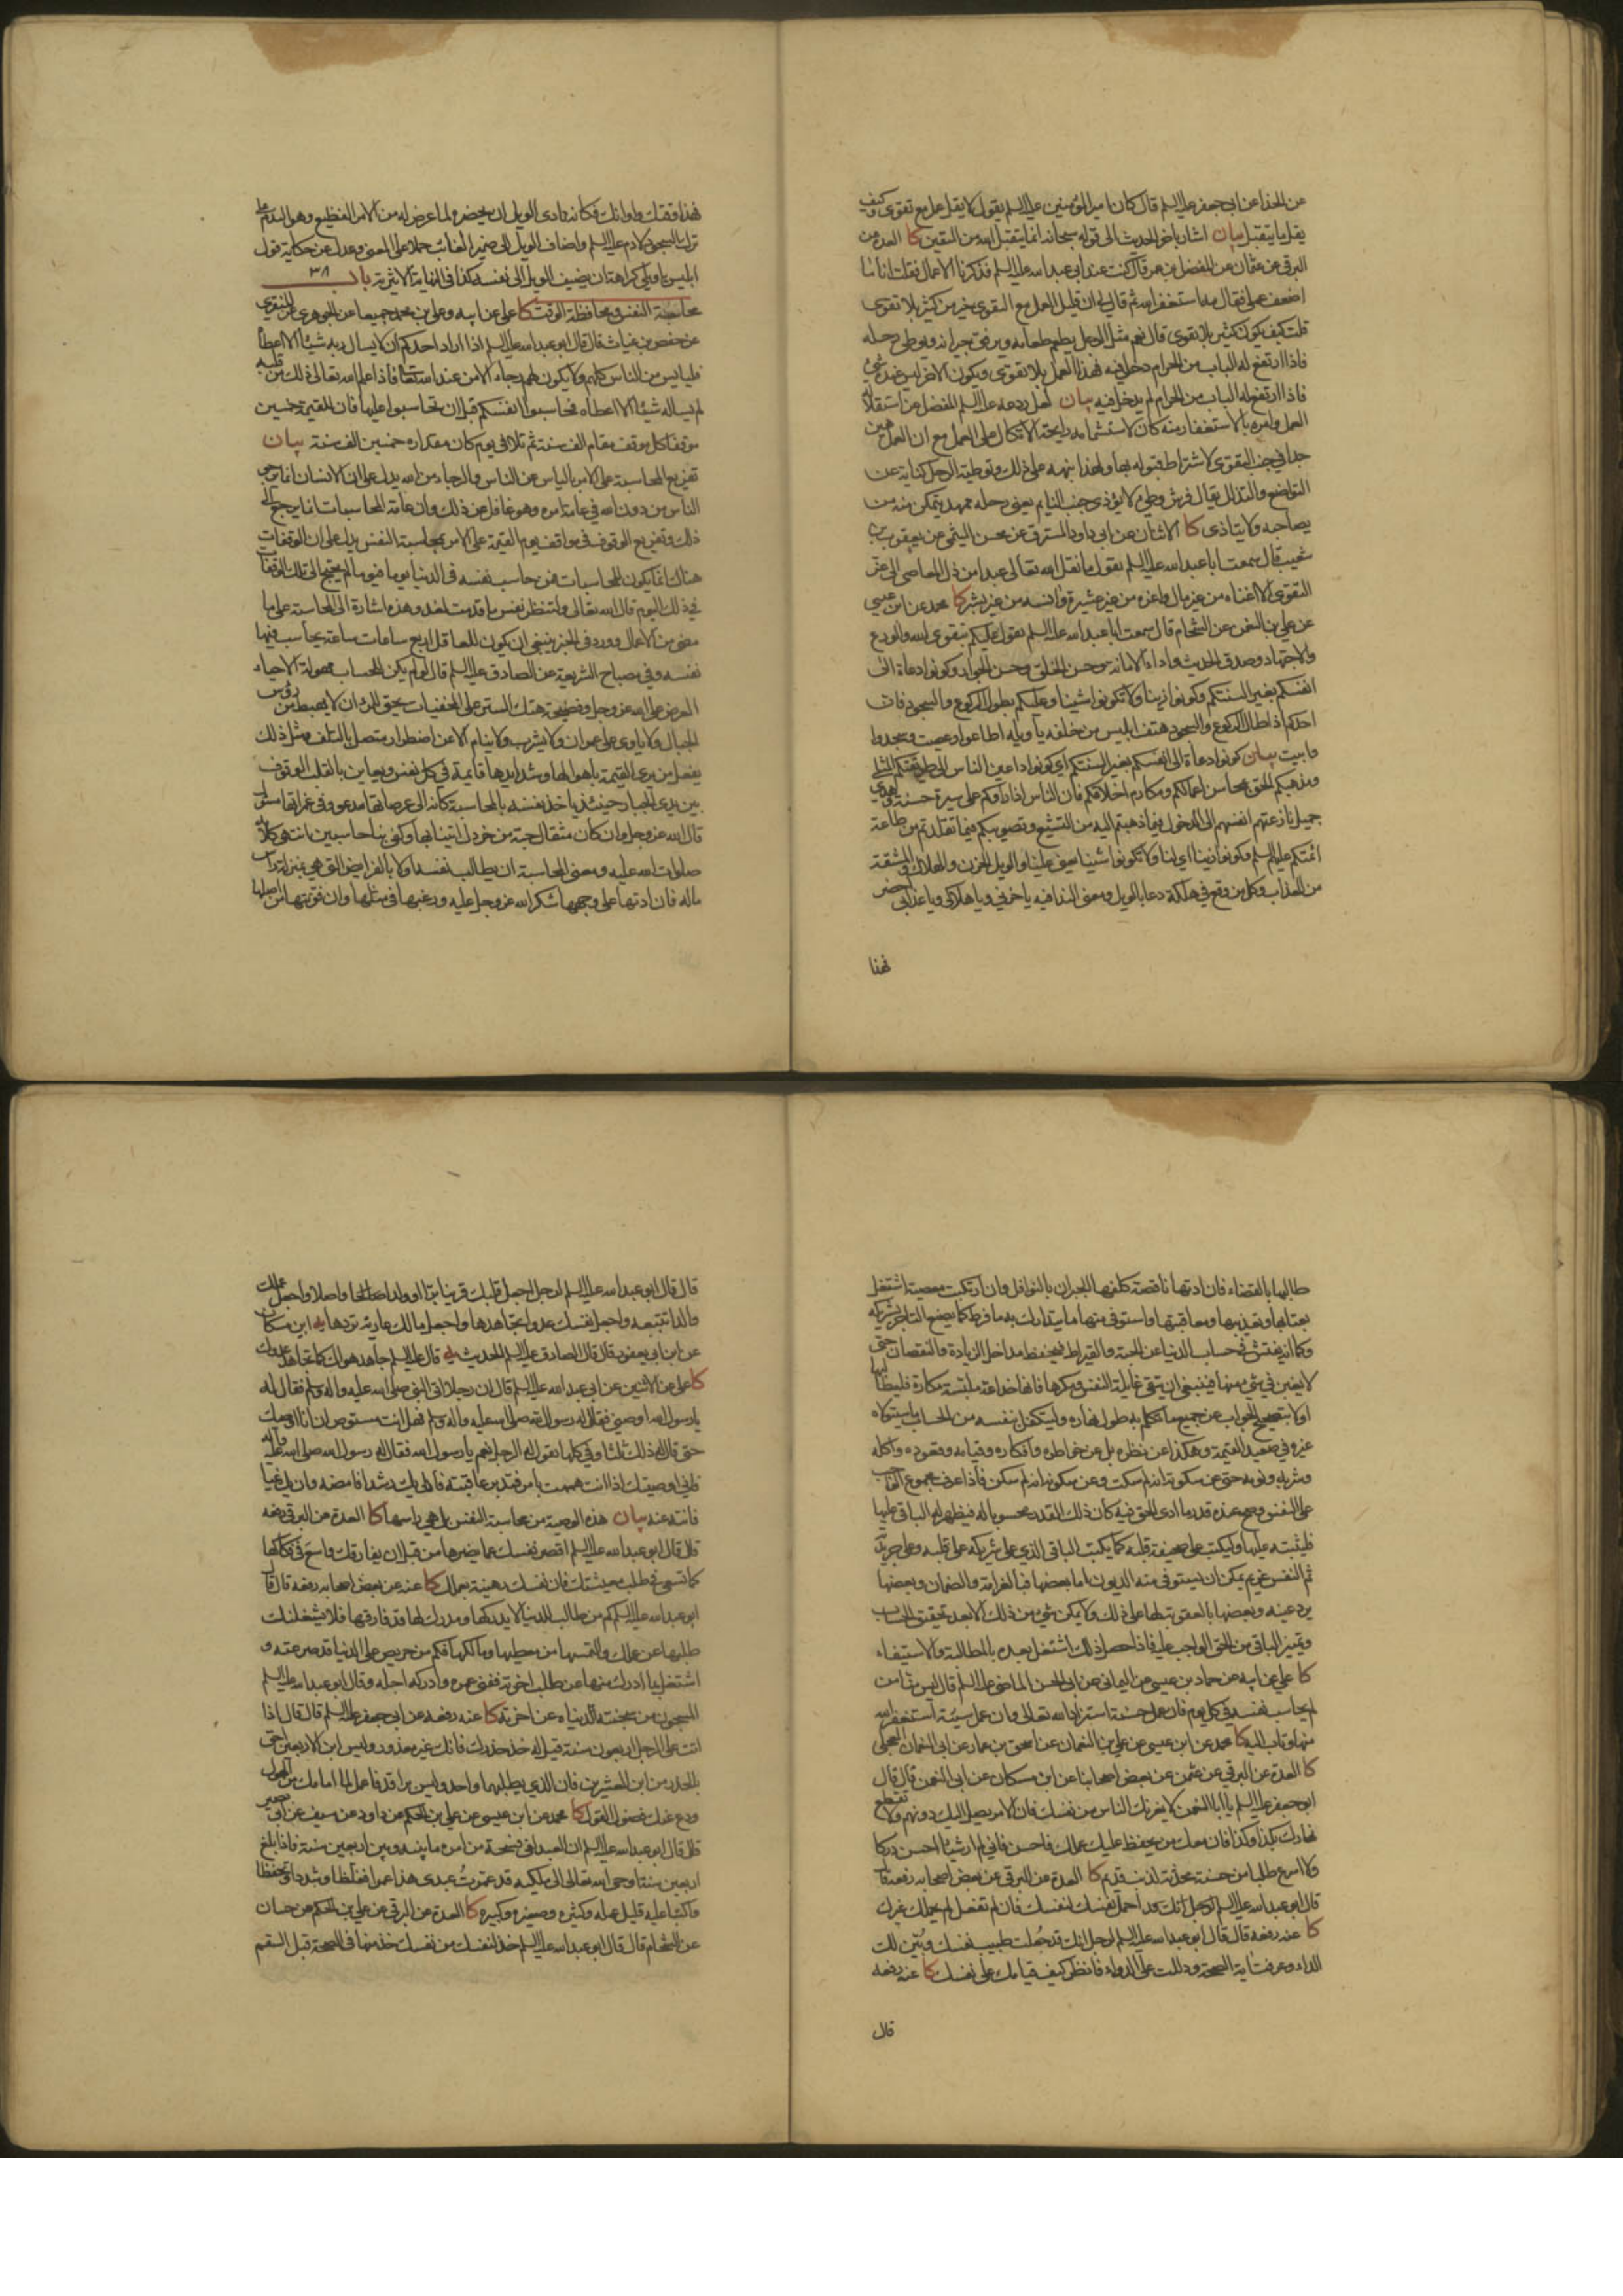 عن الحذا عن ابي جعفر عليه السلم قال كان امير المؤمنين عليه السلم يقول لا يقل عمل مع تقوى وكيف
يقل ما يتقبل بيان اشار باخر الحديث الى قوله سبحانه انما يتقبل الله من المتقين كا العدة عن
البرقي عن عثمان عن المفضل بن عمر قال كنت عند ابي عبد الله عليه السلم فذكرنا الاعمال فقلت انا ما
اضعف عملي فقال مه استغفر الله ثم قال لي ان قليل العمل مع التقوى خير من كثير بلا تقوى
قلت كيف يكون كثير بلا تقوى قال نعم مثل الرجل يطعم طعامه ويرفق جيرانه ويوطئ رحله
فاذا ارتفع له الباب من الحرام دخل فيه فهذا العمل بلا تقوى ويكون الاخر ليس عنده شيء
فاذا ارتفع له الباب من الحرام لم يدخل فيه بيان لعل ردعه عليه السلم المفضل عن استقلاله
العمل وامره بالاستغفار منه كان لاستشمامه رايحة الاتكال على العمل مع ان العمل هين
جدا في جنب التقوى لاشتراط قبوله بها ولهذا نبهه على ذلك وتوطية الرحل كناية عن
التواضع والتذلل يقال فرش وطيء لا يؤذي جنب النايم يعني رحله ممهد يتمكن منه من
يصاحبه ولا يتاذى كا الاثنان عن ابي داود المسترق عن محسن الميثمي عن يعقوب بن
شعيب قال سمعت ابا عبد الله عليه السلم يقول ما نقل الله تعالى عبدا من ذل المعاصي الى عز
التقوى الا اغناه من غير مال واعزه من غير عشيرة وانسه من غير بشر كا محمد عن ابن عيسى
عن علي بن النعمن عن الشحام قال سمعت ابا عبد الله عليه السلم يقول عليكم بتقوى الله والورع
والاجتهاد وصدق الحديث واداء الامانة وحسن الخلق وحسن الجوار وكونوا دعاة الى
انفسكم بغير السنتكم وكونوا زينا ولا تكونوا شينا وعليكم بطول الركوع والسجود فان
احدكم اذا طال الركوع والسجود هتف ابليس من خلفه يا ويله اطاعوا وعصيت وسجدوا
وابيت بيان كونوا دعاة الى انفسكم بغير السنتكم اي كونوا داعين الناس الى طريقتكم المثلى
ومذهبكم الحق بمحاسن اعمالكم ومكارم اخلاقكم فان الناس اذا راوكم على سيرة حسنة وهدي
جميل نازعتهم انفسهم الى الدخول فيما ذهبتم اليه من التشيع وتصويبكم فيما تقلدتم من طاعة
ائمتكم عليهم السلم وكونوا زينا اي لنا ولا تكونوا شينا يعني علينا والويل الحزن والهلاك والمشقة
من العذاب وكل من وقع في هلكة دعا بالويل ومعنى الندا فيه يا حزني ويا هلاكي ويا عذابي احضر
فهذا
فهذا وقتك واوانك فكانه نادى الويل ان يحضره لما عرض له من الامر الفظيع وهو الندم على
ترك السجود لادم عليه السلم واضاف الويل الى ضمير الغائب حملا على المعنى وعدل عن حكاية قول
ابليس يا ويلي كراهة ان يضيف الويل الى نفسه كذا في النهاية الاثيرية باب ٣٨
محاسبة النفس ومحافظة الوقت كا علي عن ابيه وعلي بن محمد جميعا عن الجوهري عن المنقري
عن حفص بن غياث قال قال ابو عبد الله عليه السلم اذا اراد احدكم ان لا يسال ربه شيئا الا اعطاه
فليايس من الناس كلهم ولا يكون لهم رجاء الا من عند الله تعالى فاذا علم الله تعالى ذلك من قلبه
لم يساله شيئا الا اعطاه فحاسبوا انفسكم قبل ان تحاسبوا عليها فان للقيمة خمسين
موقفا كل موقف مقام الف سنة ثم تلا في يوم كان مقداره خمسين الف سنة بيان
تفريع المحاسبة على الامر بالياس عن الناس والرجاء من الله يدل على ان الانسان انما يرجو
الناس من دون الله في عامة امره وهو غافل عن ذلك وان عامة المحاسبات انما يرجع الى
ذلك وتفريع الوقوف في مواقف يوم القيمة على الامر بمحاسبة النفس يدل على ان الوقفات
هناك انما يكون للمحاسبات فمن حاسب نفسه في الدنيا يوما فيوما لم يحتج الى تلك الوقفات
في ذلك اليوم قال الله تعالى ولتنظر نفس ما قدمت لغد وهذه اشارة الى المحاسبة على ما
مضى من الاعمال وورد في الخبر ينبغي ان يكون للعاقل اربع ساعات ساعة يحاسب فيها
نفسه وفي مصباح الشريعة عن الصادق عليه السلم قال لو لم يكن للحساب مهولة الا حياء
العرض على الله عز وجل وفضيحة هتك الستر على المخفيات يحق للمرء ان لا يهبط من رؤس
الجبال ولا ياوي على عمران ولا يشرب ولا ينام الا عن اضطرار متصل بالتلف ومثل ذلك
يفعل من يرى القيمة باهوالها وشدايدها قايمة في كل نفس ويعاين بالقلب الوقوف
بين يدي الجبار حينئذ ياخذ نفسه بالمحاسبة كانه الى عرصاتها مدعو وفي غمراتها مسئول
قال الله عز وجل وان كان مثقال حبة من خردل اتينا بها وكفى بنا حاسبين انتهى كلامه
صلوات الله عليه ومعنى المحاسبة ان يطالب نفسه اولا بالفرايض التي هي بمنزلة راس
ماله فان ادتها على وجهها شكر الله عز وجل عليه ورغبها في مثلها وان فوتتها من اصلها
طالبها بالقضاء فان ادتها ناقصة كلفها الجبران بالنوافل وان ارتكبت معصية اشتغل
بعتابها وتعذيبها ومعاقبتها واستوفى منها ما يتدارك به ما فرط كما يصنع التاجر بشريكه
وكما انه يفتش في حساب الدنيا عن الحبة والقيراط فيحفظ مداخل الزيادة والنقصان حتى
لا يغبن في شيء منها فينبغي ان يتقي غايلة النفس ومكرها فانها خداعة ملبسة مكارة فليطالبها
اولا بتصحيح الجواب عن جميع ما تكلم به طول نهاره وليتكفل بنفسه من الحساب ما سيتولاه
غيره في صعيد القيمة وهكذا عن نظره بل عن خواطره وافكاره وقيامه وقعوده واكله
وشربه ونومه حتى عن سكوته انه لم سكت وعن سكونه انه لم سكن فاذا عرف مجموع الواجب
على النفس وصح عنده قدر ما ادى الحق فيه كان ذلك القدر محسوبا له فيظهر له الباقي عليها
فليثبته عليها وليكتب على صحيفة قلبه كما يكتب الباقي الذي على شريكه على قلبه وعلى جريدته
ثم النفس غريم يمكن ان يستوفى منه الديون اما بعضها فبالغرامة والضمان وبعضها
برد عينه وبعضها بالعقوبة لها على ذلك ولا يمكن شيء من ذلك الا بعد تحقيق الحساب
وتميز الباقي من الحق الواجب عليه فاذا حصل ذلك اشتغل بعده بالمطالبة والاستيفاء
كا علي عن ابيه عن حماد بن عيسى عن اليماني عن ابي الحسن الماضي عليه السلم قال ليس منا من
لم يحاسب نفسه في كل يوم فان عمل حسنة استزاد الله تعالى وان عمل سيئة استغفر الله
منها وتاب اليه كا محمد عن ابن عيسى عن علي بن النعمان عن اسحق بن عمار عن ابي النعمان العجلي
كا العدة عن البرقي عن عثمن عن بعض اصحابنا عن ابن مسكان عن ابي النعمن قال قال
ابو جعفر عليه السلم يا ابا النعمن لا يغرنك الناس من نفسك فان الامر يصل اليك دونهم ولا تقطع
نهارك بكذا وكذا فان معك من يحفظ عليك عملك فاحسن فاني لم ار شيئا احسن دركا
ولا اسرع طلبا من حسنة محدثة لذنب قديم كا العدة عن البرقي عن بعض اصحابه رفعه قال
قال ابو عبد الله عليه السلم لرجل احمل نفسك لنفسك فان لم تفعل لم يحملك غيرك
كا عنه رفعه قال قال ابو عبد الله عليه السلم لرجل انك قد جعلت طبيب نفسك وبين لك
الداء وعرفت اية الصحة ودللت على الدواء فانظر كيف قيامك على نفسك كا عنه رفعه
قال
قال قال ابو عبد الله عليه السلم لرجل اجعل قلبك قرينا برا او ولدا صالحا واصلا واجعل عملك
والدا تتبعه واجعل نفسك عدوا تجاهدها واجعل مالك عارية تردها يه ابن مسكان
عن ابن ابي يعفور قال قال الصادق عليه السلم الحديث يه قال عليه السلم جاهد هواك كما تجاهد عدوك
كا علي عن الاثنين عن ابي عبد الله عليه السلم قال ان رجلا اتى النبي صلى الله عليه واله وسلم فقال له
يا رسول الله اوصني فقال له رسول الله صلى الله عليه واله وسلم فهل انت مستوص ان انا اوصيتك
حتى قال له ذلك ثلثا وفي كلها يقول له الرجل نعم يا رسول الله فقال له رسول الله صلى الله عليه واله
فاني اوصيك اذا انت هممت بامر فتدبر عاقبته فان يك رشدا فامضه وان يك غيا
فانته عنه بيان هذه الوصية من محاسبة النفس بل هي راسها كا العدة عن البرقي رفعه
قال قال ابو عبد الله عليه السلم اقصر نفسك عما يضرها من قبل ان يفارقك واسع في فكاكها
كما تسعى في طلب معيشتك فان نفسك رهينة بعملك كا عنه عن بعض اصحابه رفعه قال قال
ابو عبد الله عليه السلم كم من طالب للدنيا لا يدركها ومدرك لها قد فارقها فلا يشغلنك
طلبها عن عملك والتمسها من معطيها ومالكها فكم من حريص على الدنيا قد صرعته و
اشتغل بما ادرك منها عن طلب اخرته ففنى عمره وادركه اجله وقال ابو عبد الله عليه السلم
المسجون من سجنته الدنياه عن اخرته كا عنه رفعه عن ابي جعفر عليه السلم قال قال اذا
اتت على الرجل اربعون سنة قيل له خذ حذرك فانك غير معذور وليس ابن الاربعين احق
بالحذر من ابن العشرين فان الذي يطلبهما واحد وليس براقد فاعمل لما امامك من الهول
ودع عنك فضول القول كا محمد عن ابن عيسى عن علي بن الحكم عن داود عن سيف عن ابي بصير
قال قال ابو عبد الله عليه السلم ان العبد لفي فسحة من امره ما بينه وبين اربعين سنة فاذا بلغ
اربعين سنة اوحى الله تعالى الى ملكيه قد عمرت عبدي هذا عمرا فغلظا وشددا وتحفظا
واكتبا عليه قليل عمله وكثيره وصغيره وكبيره كا العدة عن البرقي عن علي بن الحكم عن حسان
عن الشحام قال قال ابو عبد الله عليه السلم خذ لنفسك من نفسك خذ منها في الصحة قبل السقم